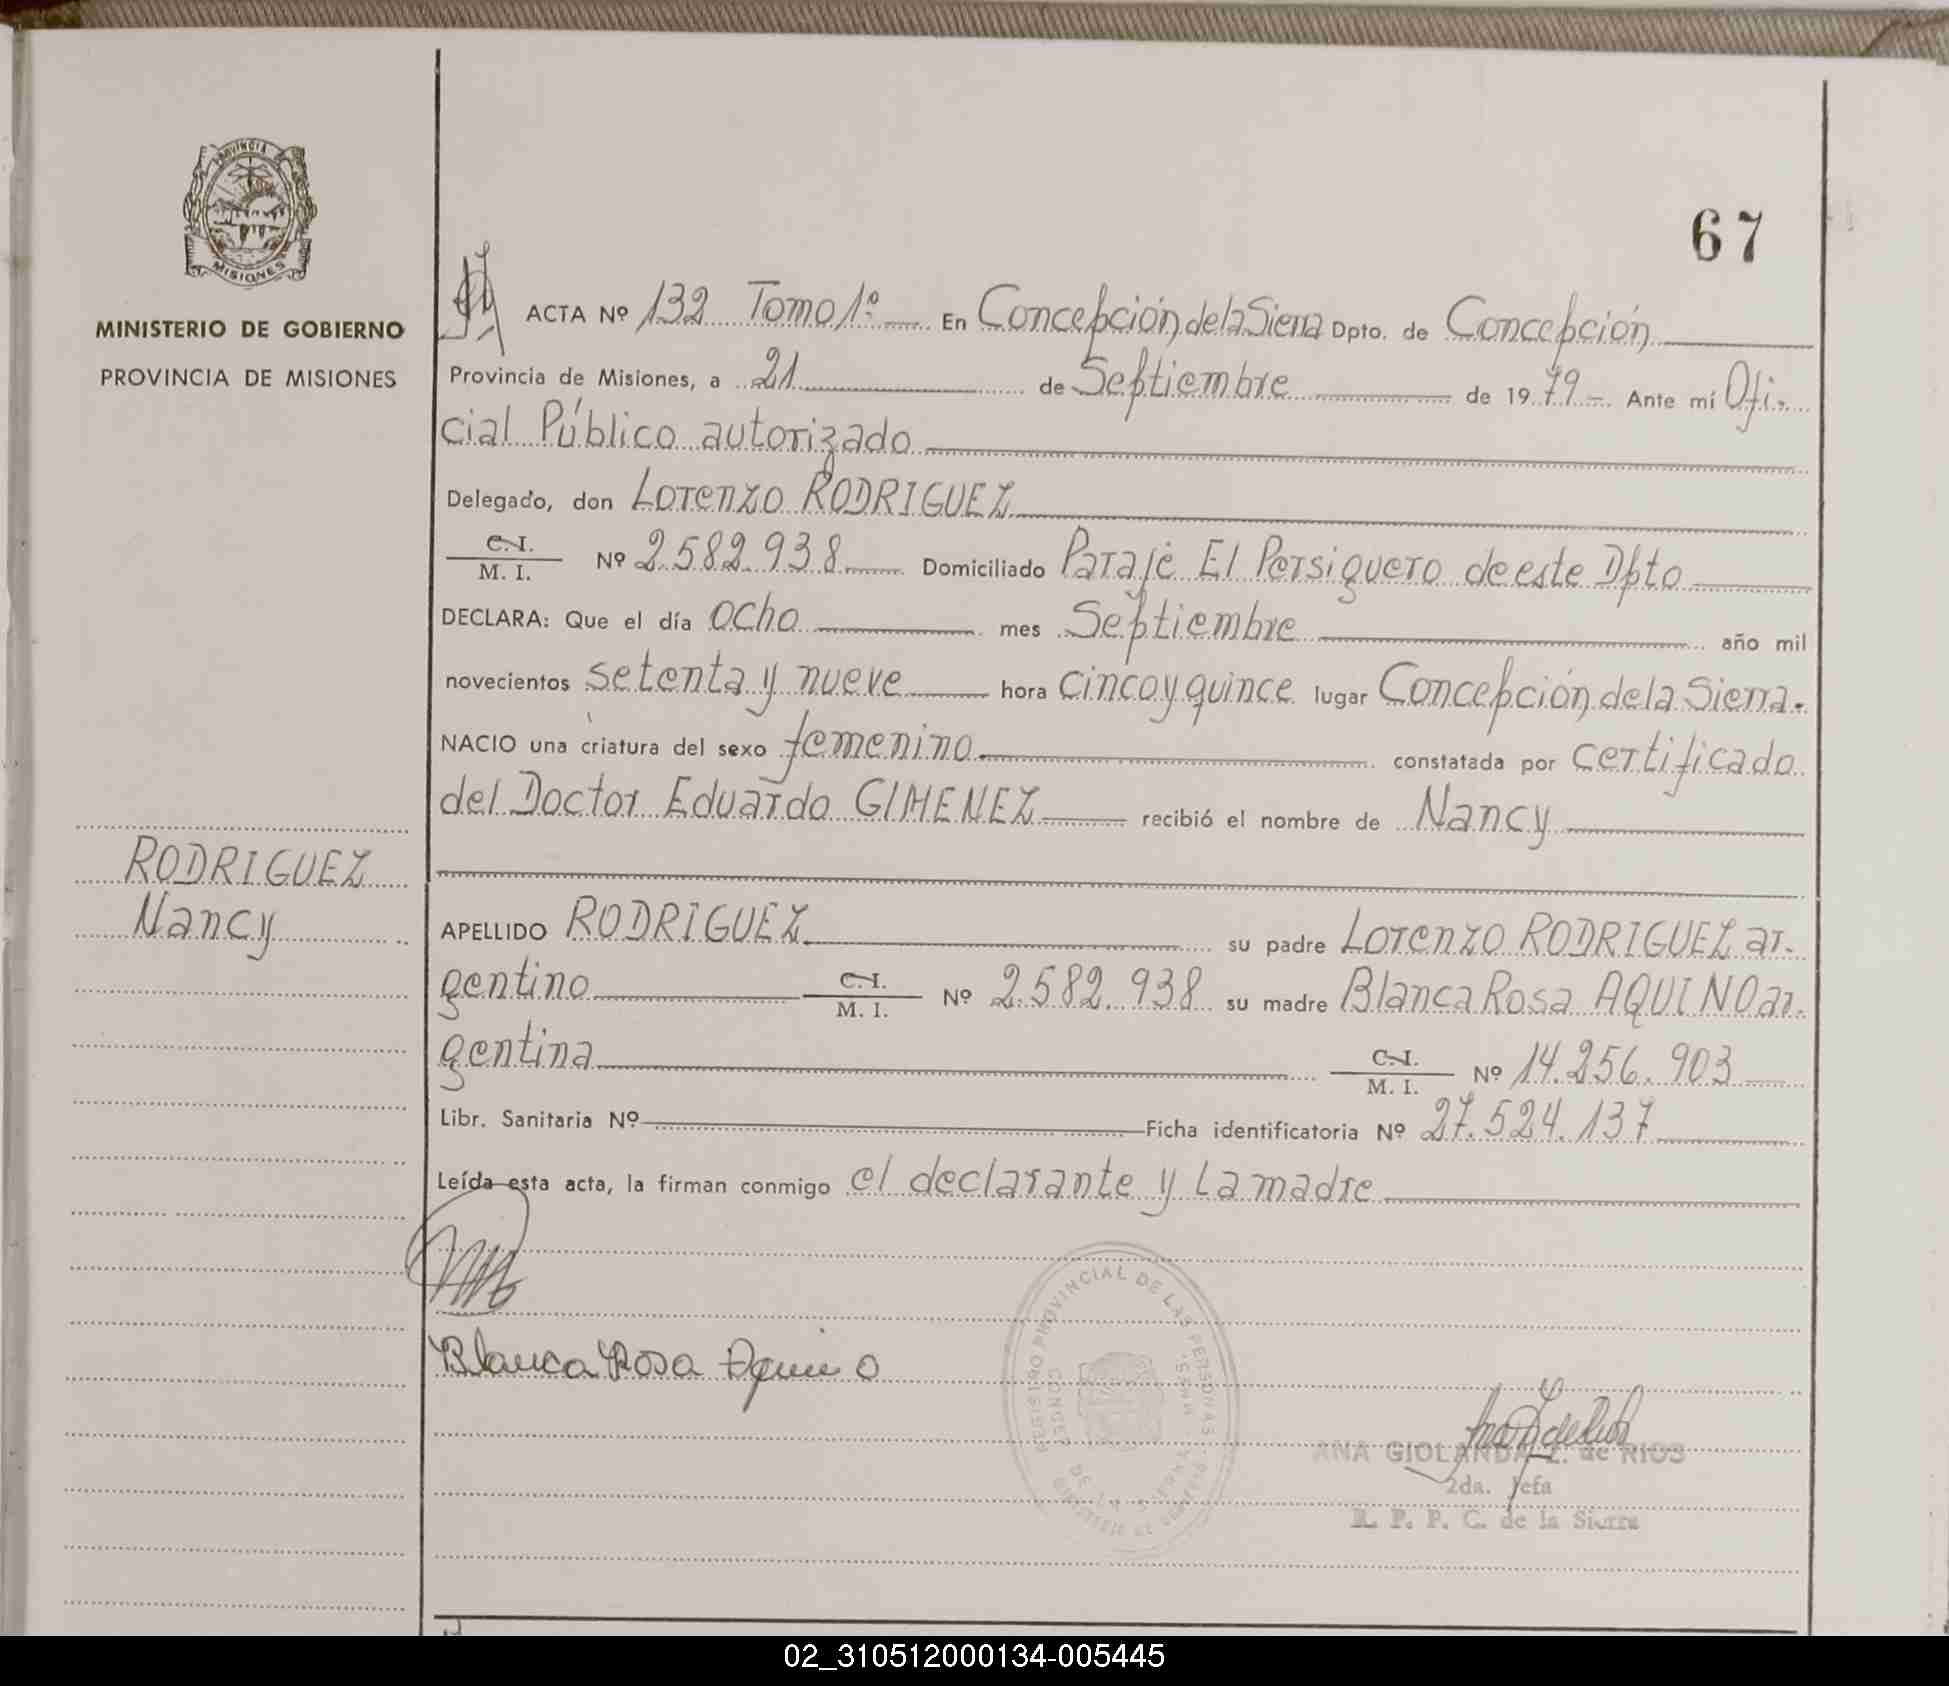 PROVINCIA
MISIONES
MINISTERIO DE GOBIERNO
PROVINCIA DE MISIONES
67
ACTA Nº 132 Tomo 1º En Concepción de la Sierra Dpto. de Concepción
Provincia de Misiones, a 21 de Septiembre de 19 79 - Ante mí Ofi-
cial Público autorizado
Delegado, don Lorenzo RODRIGUEZ
C.I.
M. I. Nº 2.582.938 Domiciliado Paraje El Persiguero de este Dpto
DECLARA: Que el día ocho mes Septiembre año mil
novecientos setenta y nueve hora cinco y quince lugar Concepción de la Sierra.
NACIO una criatura del sexo femenino constatada por certificado
del Doctor Eduardo GIMENEZ recibió el nombre de Nancy
RODRIGUEZ
Nancy
APELLIDO RODRIGUEZ su padre Lorenzo RODRIGUEZ ar-
gentino C.I. M. I. Nº 2.582.938 su madre Blanca Rosa AQUINO ar-
gentina C.I. M. I. Nº 14.256.903
Libr. Sanitaria Nº Ficha identificatoria Nº 27.524.137
Leída esta acta, la firman conmigo el declarante y la madre
Blanca Rosa Aquino
REGISTRO PROVINCIAL DE LAS PERSONAS
ANA GIOLANDA Z. de RIOS
2da. Jefa
R. P. P. C. de la Sierra
02_310512000134-005445